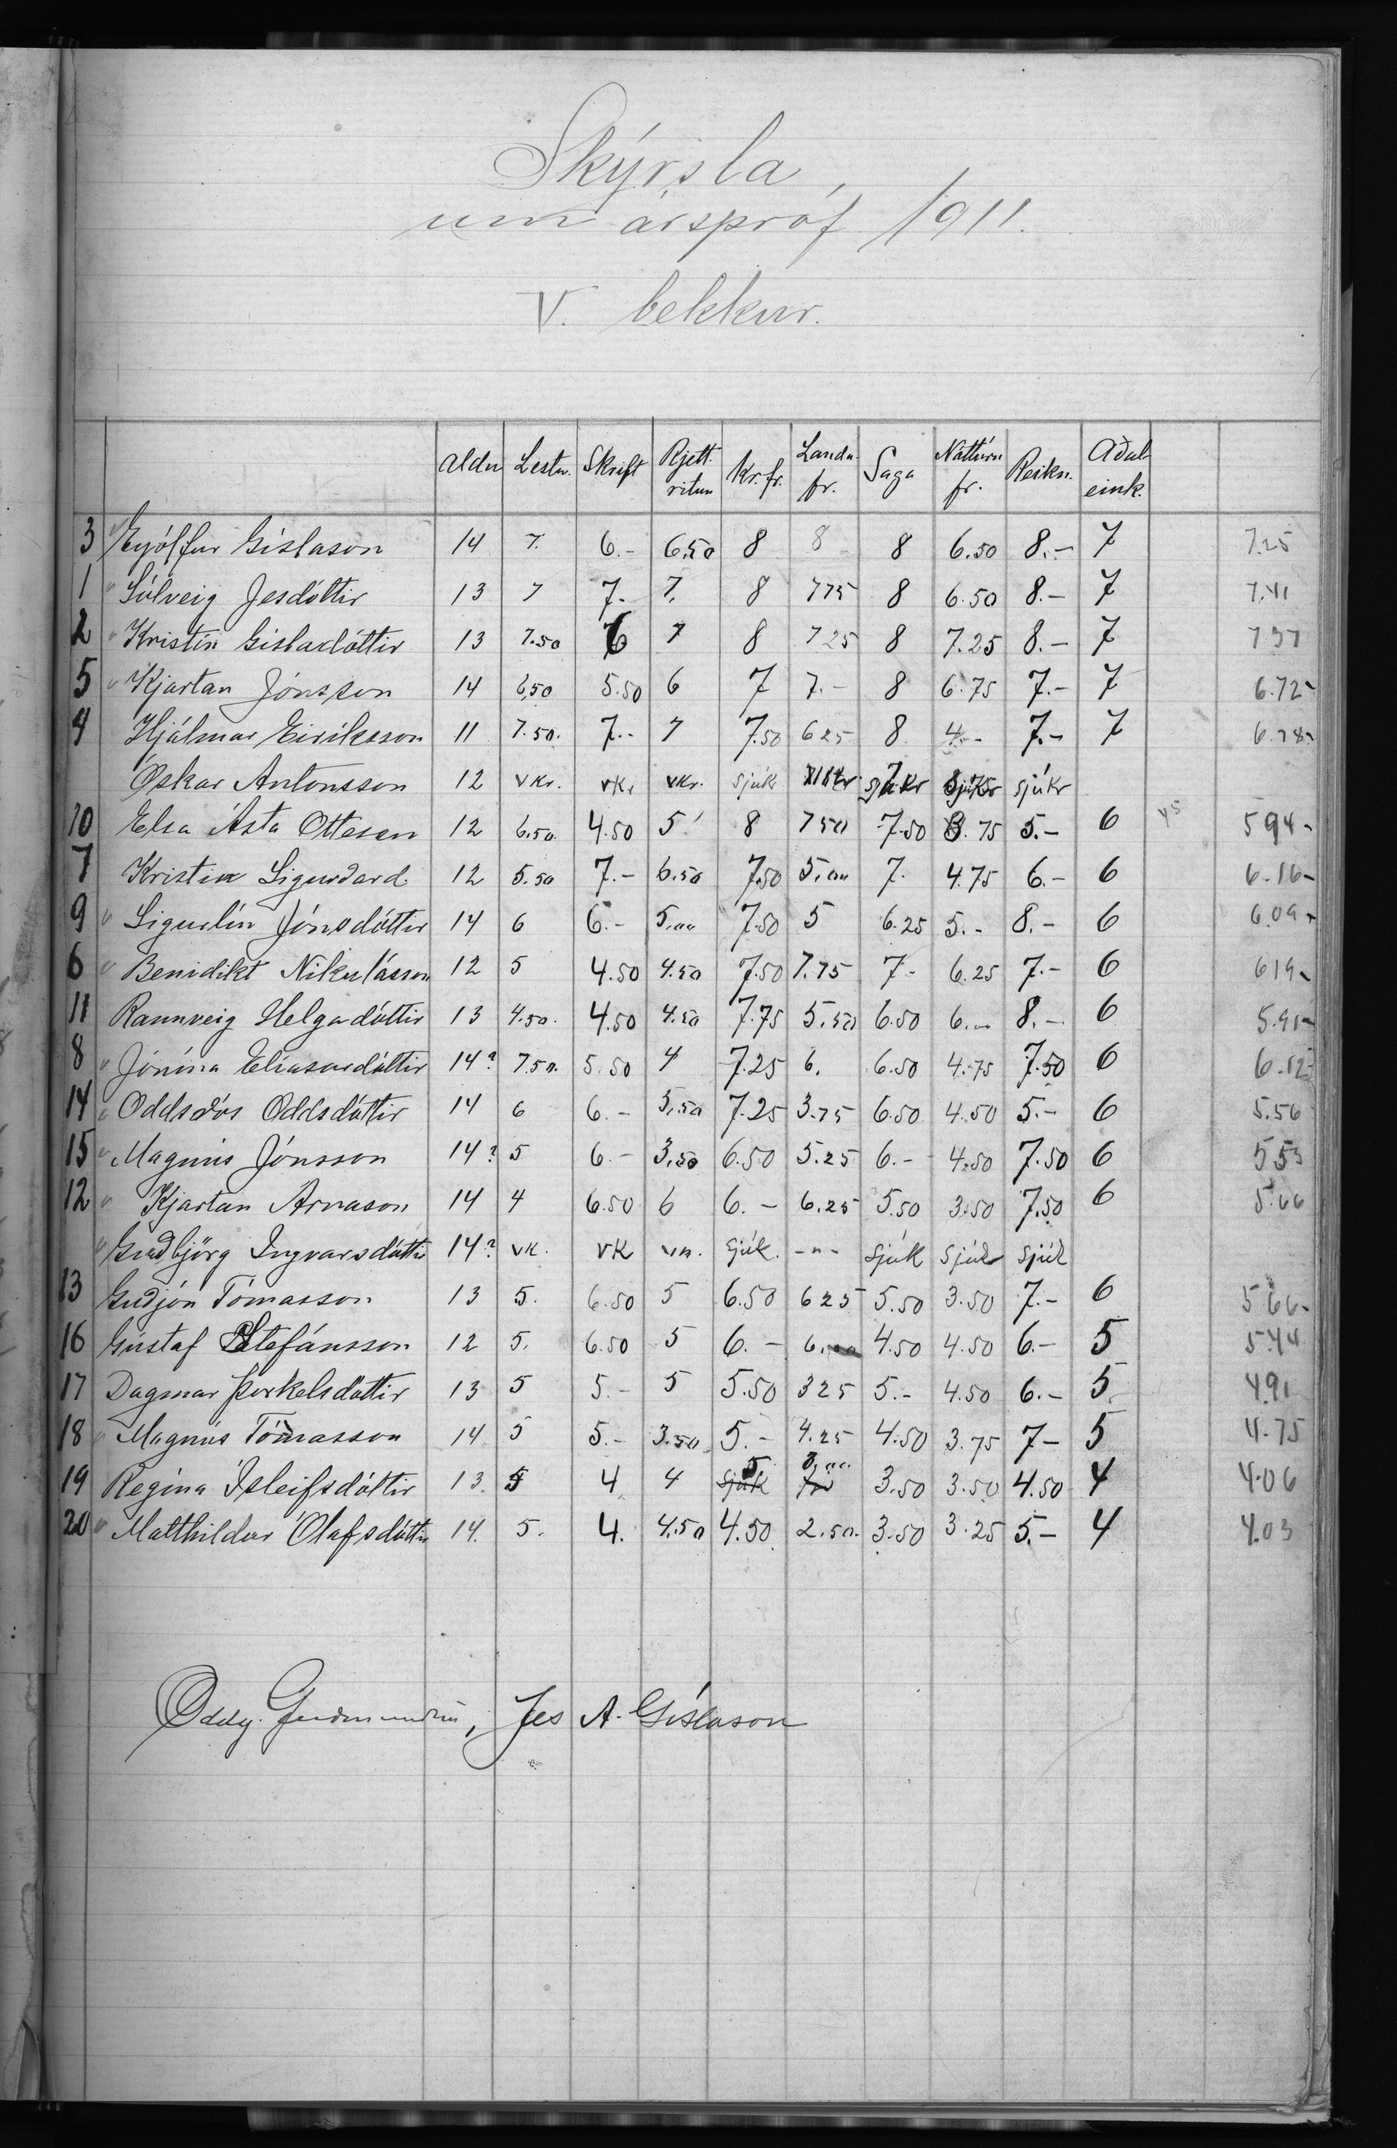 Skýrsla
um árspróf 1911.
V. bekkur.
Aldur Lestur. Skrift Rjett-ritun Kr.fr. Landa-fr. Saga Náttúru fr. Reikn. Aðal eink.
3 " Eyjólfur Gíslason 14 7. 6.- 6.50 8 8 8 6.50 8.- 7 7.25
1 " Sólveig Jesdóttir 13 7 7.- 7. 8 775 8 6.50 8.- 7 7.41
2 " Kristín Gísladóttir 13 7.50 6 7 8 725 8 7.25 8.- 7 737
5 " Kjartan Jónsson 14 6,50 5.50 6 7 7.- 8 6.75 7.- 7 6.72
4 Hjálmar Eiríksson 11 7.50. 7.- 7 7.50 625 8 4.- 7.- 7 6.78
Óskar Antonsson 12 vkr. vkr vkr. sjúk sjúkr sjúkr sjúkr
10 Elsa Ásta Ottesen 12 6.50. 4.50 5 8 750 7.50 3.75 5.- 6 45 594-
7 Kristín Sigurdard. 12 5.50 7.- 6.50 7.50 5.00 7. 4.75 6.- 6 6.16-
9 " Sigurlín Jónsdóttir 14 6 6.- 5.00 7.50 5 6.25 5.- 8.- 6 6.09
6 " Benidikt Nikulásson 12 5 4.50 4.50 7.50 7.75 7- 6.25 7.- 6 619-
11 Rannveig Helgadóttir 13 4.50. 4.50 4.50 7.75 5.50 6.50 6.- 8.- 6 5.91-
8 " Jónína Elíasardóttir 14? 7.50. 5.50 4 7.25 6. 6.50 4.75 7.50 6 6.12
14 " Oddsdós Oddsdóttir 14 6 6.- 3.50 7.25 3.75 6.50 4.50 5.- 6 5.56
15 " Magnús Jónsson 14? 5 6.- 3.50 6.50 5.25 6.- 4.50 7.50 6 553
12 " Kjartan Árnason 14 4 6.50 6 6.- 6.25 5.50 3.50 7.50 6 5.66
" Gudbjörg Ingvarsdóttir 14? vk. vk sjúk. -"- sjúk sjúk sjúk
13 Gudjón Tómasson 13 5. 6.50 5 6.50 625 5.50 3.50 7.- 6 566-
16 Gústaf Stefánsson 12 5. 6.50 5 6.- 6.00 4.50 4.50 6.- 5 5.44
17 Dagmar Þorkelsdóttir 13 5 5.- 5 5.50 325 5.- 4.50 6.- 5 4.91
18 " Magnús Tómasson 14 5 5.- 3.50 5.- 4.25 4.50 3.75 7- 5 4.75
19 Regína Ísleifsdóttir 13. 5 4 4 sjúk 5 3.00 3.50 3.50 4.50 4 4.06
20 " Matthildur Ólafsdóttir 14. 5. 4. 4.50 4.50 2.50. 3.50 3.25 5.- 4 4.03
Oddg. Gudmundss., Jes A. Gíslason